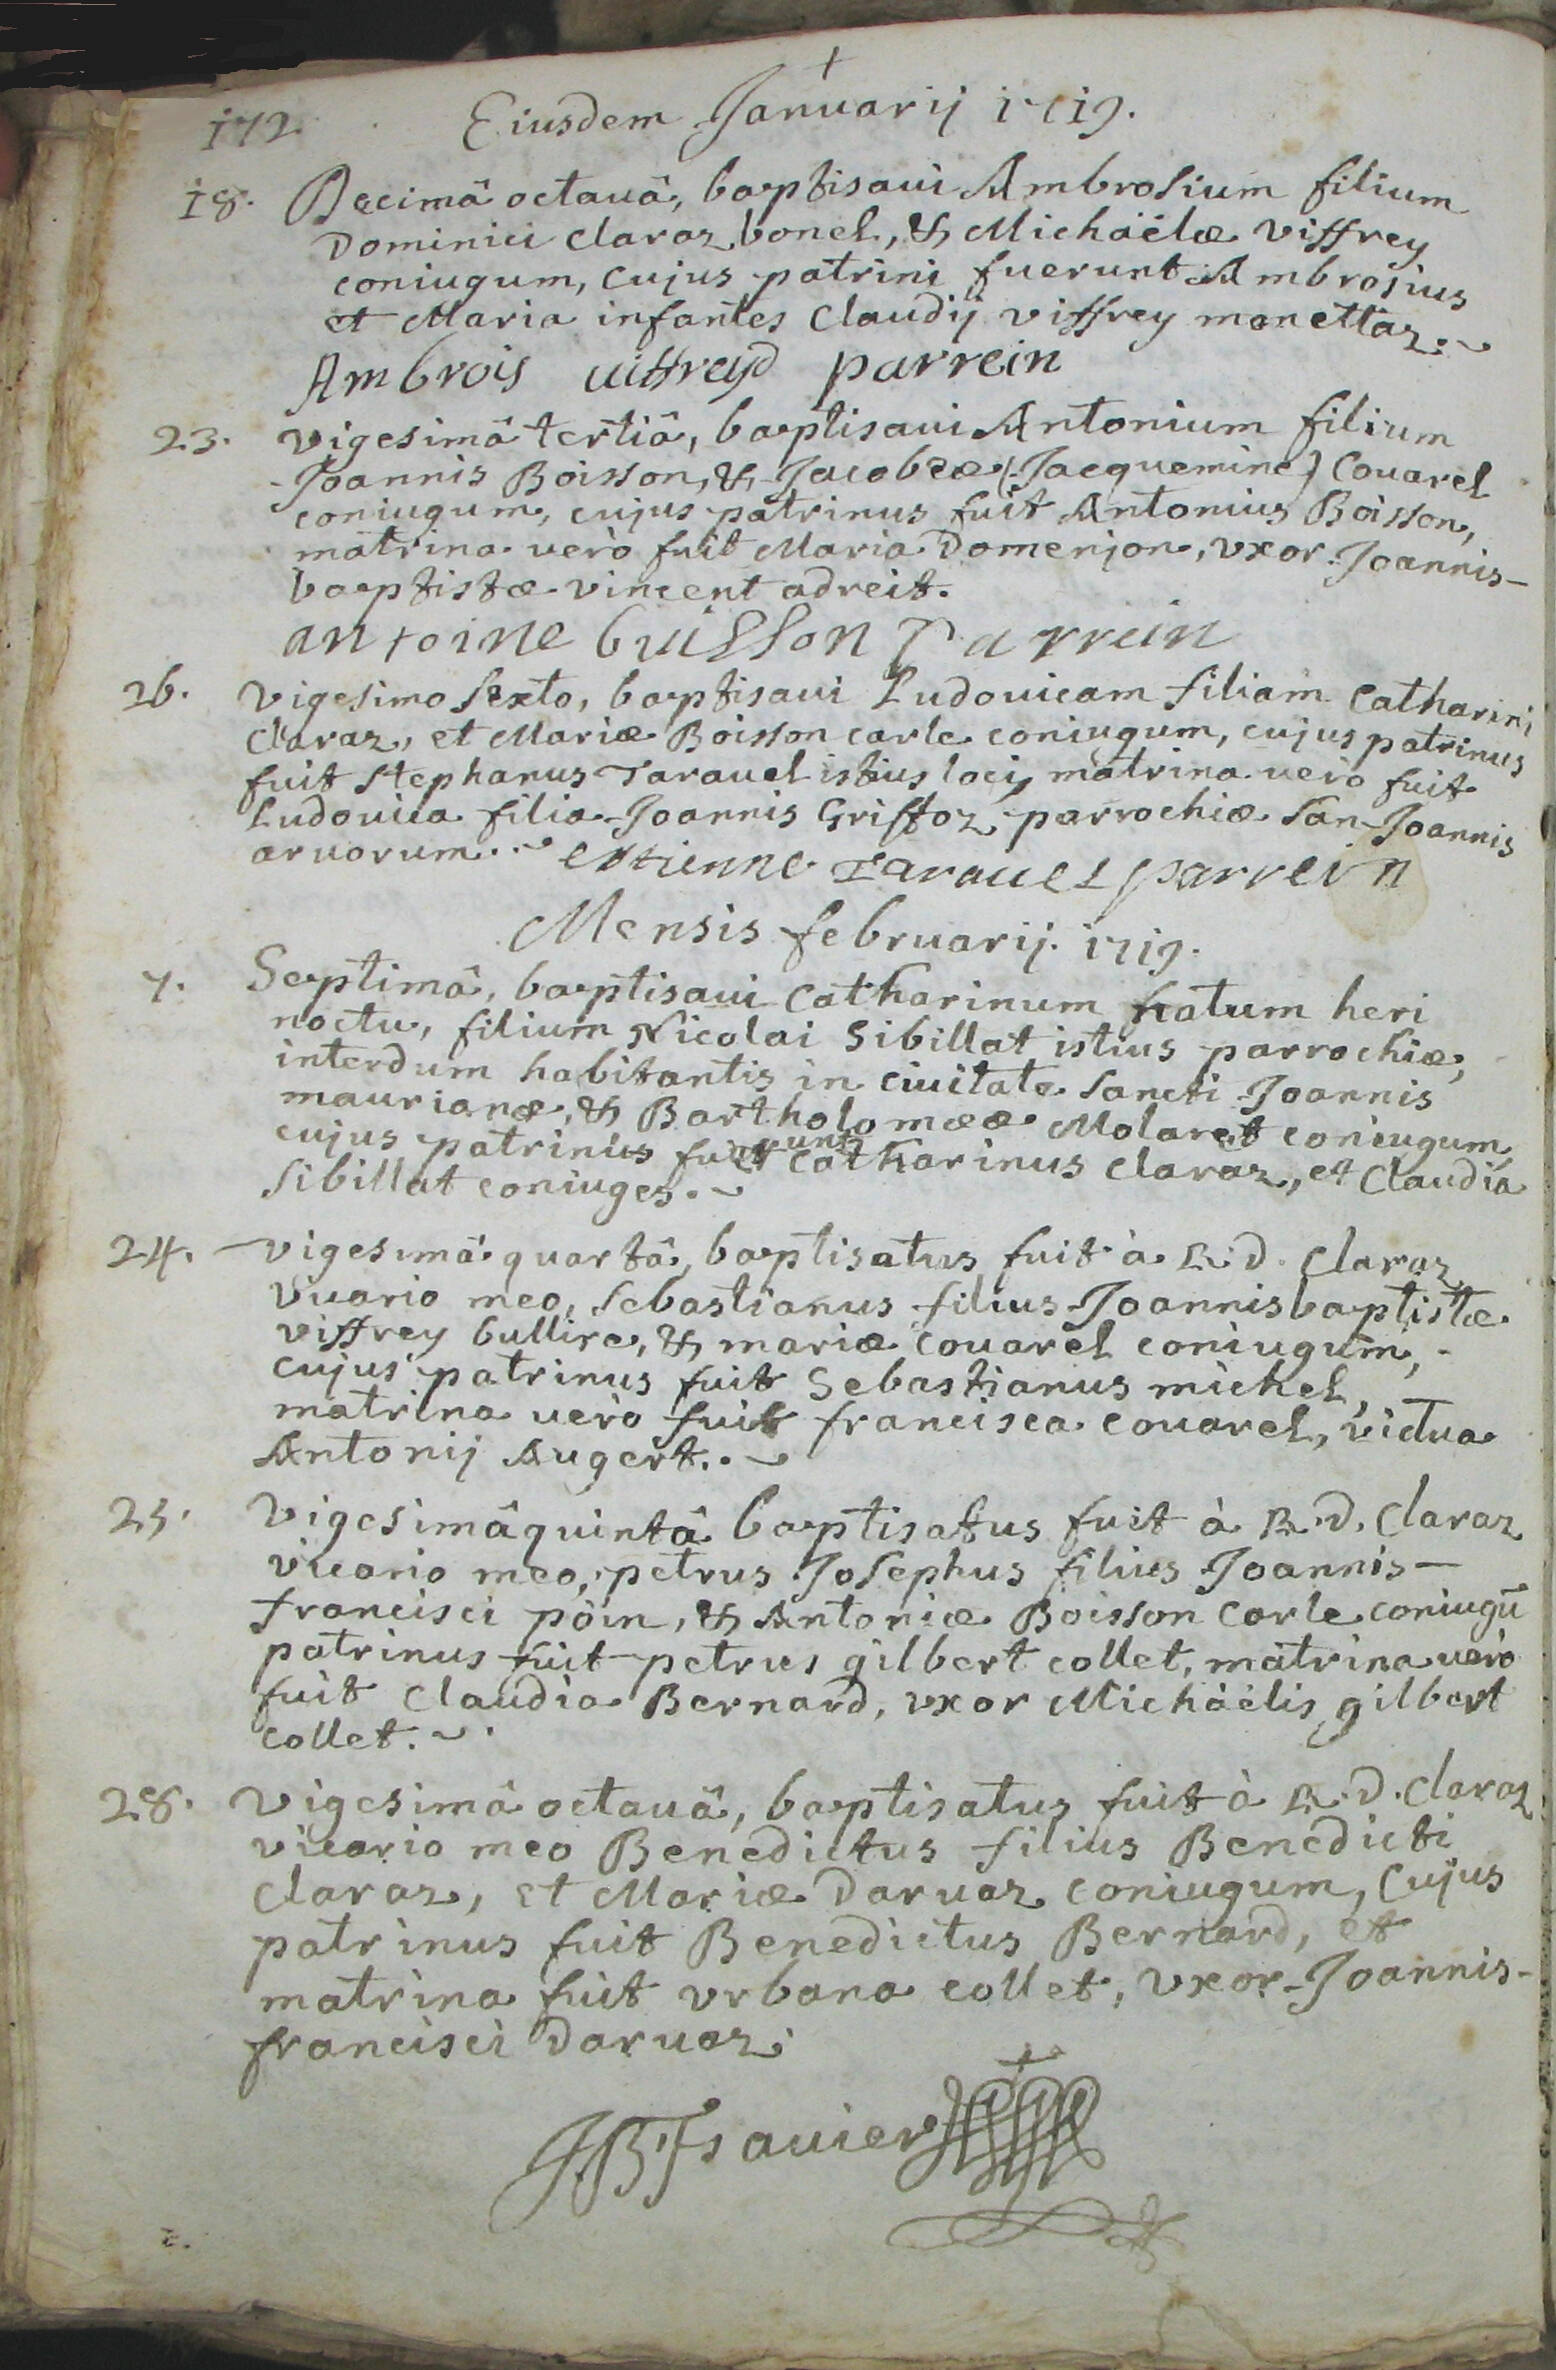 172. Eiusdem Januarij 1719.
18. Decimâ octauâ, baptisaui Ambrosium filium
Dominici Claraz bonel, & Michäelæ Viffrey
coniugum, cujus patrini fuerunt Ambrosius
et Maria infantes Claudij viffrey monettaz.
Ambrois uiffreyd parrein
23. vigesimâ tertiâ, baptisaui Antonium filium
Joannis Boisson, & Jacobeæ (Jacquemine) Couarel
coniugum, cujus patrinus fuit Antonius Boisson,
matrina verò fuit Maria Domenjon, vxor Joannis-
baptistæ vincent adreit.
antoine buisson Parrein
26. Vigesimo sexto, baptisaui Ludouicam filiam Catharini
Claraz, et Mariæ Boisson carle coniugum, cujus patrinus
fuit Stephanus Tarauel istius loci, matrina verò fuit
Ludouica filia Joannis Griffoz parrochiæ San-Joannis
aruorum. estienne Tarauel parrein
Mensis februarij. 1719.
7. Septimâ, baptisaui Catharinum natum heri
noctu, filium Nicolai Sibillat istius parrochiæ,
interdum habitantis in ciuitate Sancti Joannis
maurianæ, & Bartholomææ Molaret coniugum,
cujus patrinis fuerunt Catharinus Claraz, et Claudia
Sibillat coniuges.
24. vigesimâ quartâ, baptisatus fuit à R. D. Claraz
vicario meo, Sebastianus filius Joannisbaptistæ
viffrey bullire, & mariæ couarel coniugum,
cujus patrinus fuit Sebastianus michel,
matrina uerò fuit francisca couarel, vidua
Antonij Augert.
25. Vigesimâ quintâ baptisatus fuit à R. D. Claraz
vicario meo, petrus Josephus filius Joannis-
francisci pöin, & Antoniæ Boisson Carle coniugū
patrinus fuit petrus gilbert collet, matrina uerò
fuit Claudia Bernard, vxor Michäelis gilbert
collet.
28. Vigesimâ octauâ, baptisatus fuit à R. D. Claraz
vicario meo Benedictus filius Benedicti
Claraz, et Mariæ Daruaz coniugum, Cujus
patrinus fuit Benedictus Bernard, et
matrina fuit vrbana collet, vxor Joannis-
francisci Daruaz.
JB Jsauier